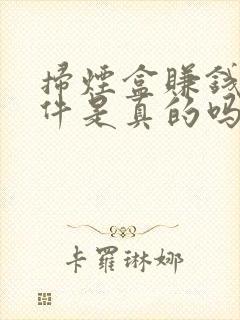 掃煙盒賺錢
件是真的吗
卡羅琳娜